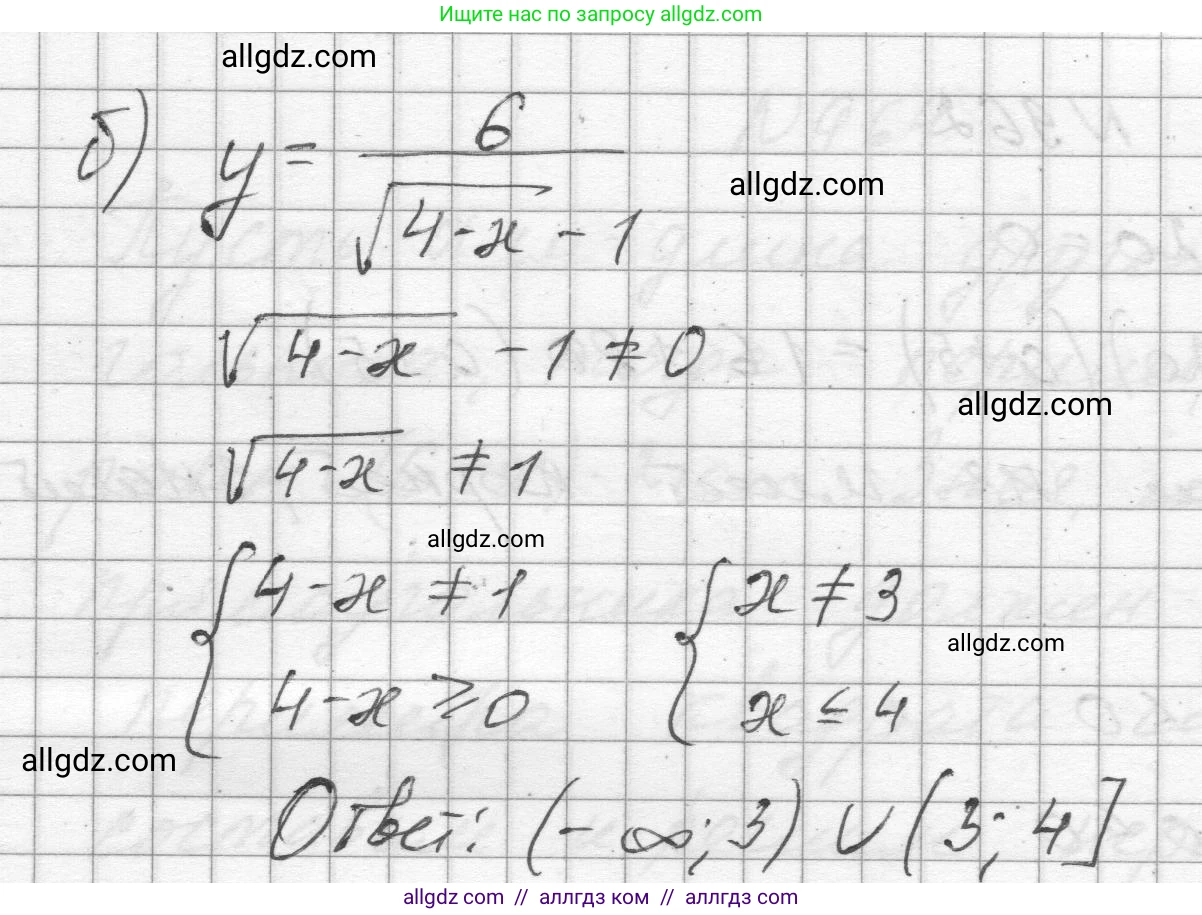 Ищите нас по запросу allgdz.com
allgdz.com
б) y = 6 / (√(4-x) - 1)
allgdz.com
√(4-x) - 1 ≠ 0
allgdz.com
√(4-x) ≠ 1
allgdz.com
{ 4-x ≠ 1 { x ≠ 3
allgdz.com
4-x ≥ 0 x ≤ 4
allgdz.com
Ответ: (-∞; 3) ∪ (3; 4]
allgdz.com // аллгдз ком // аллгдз.com